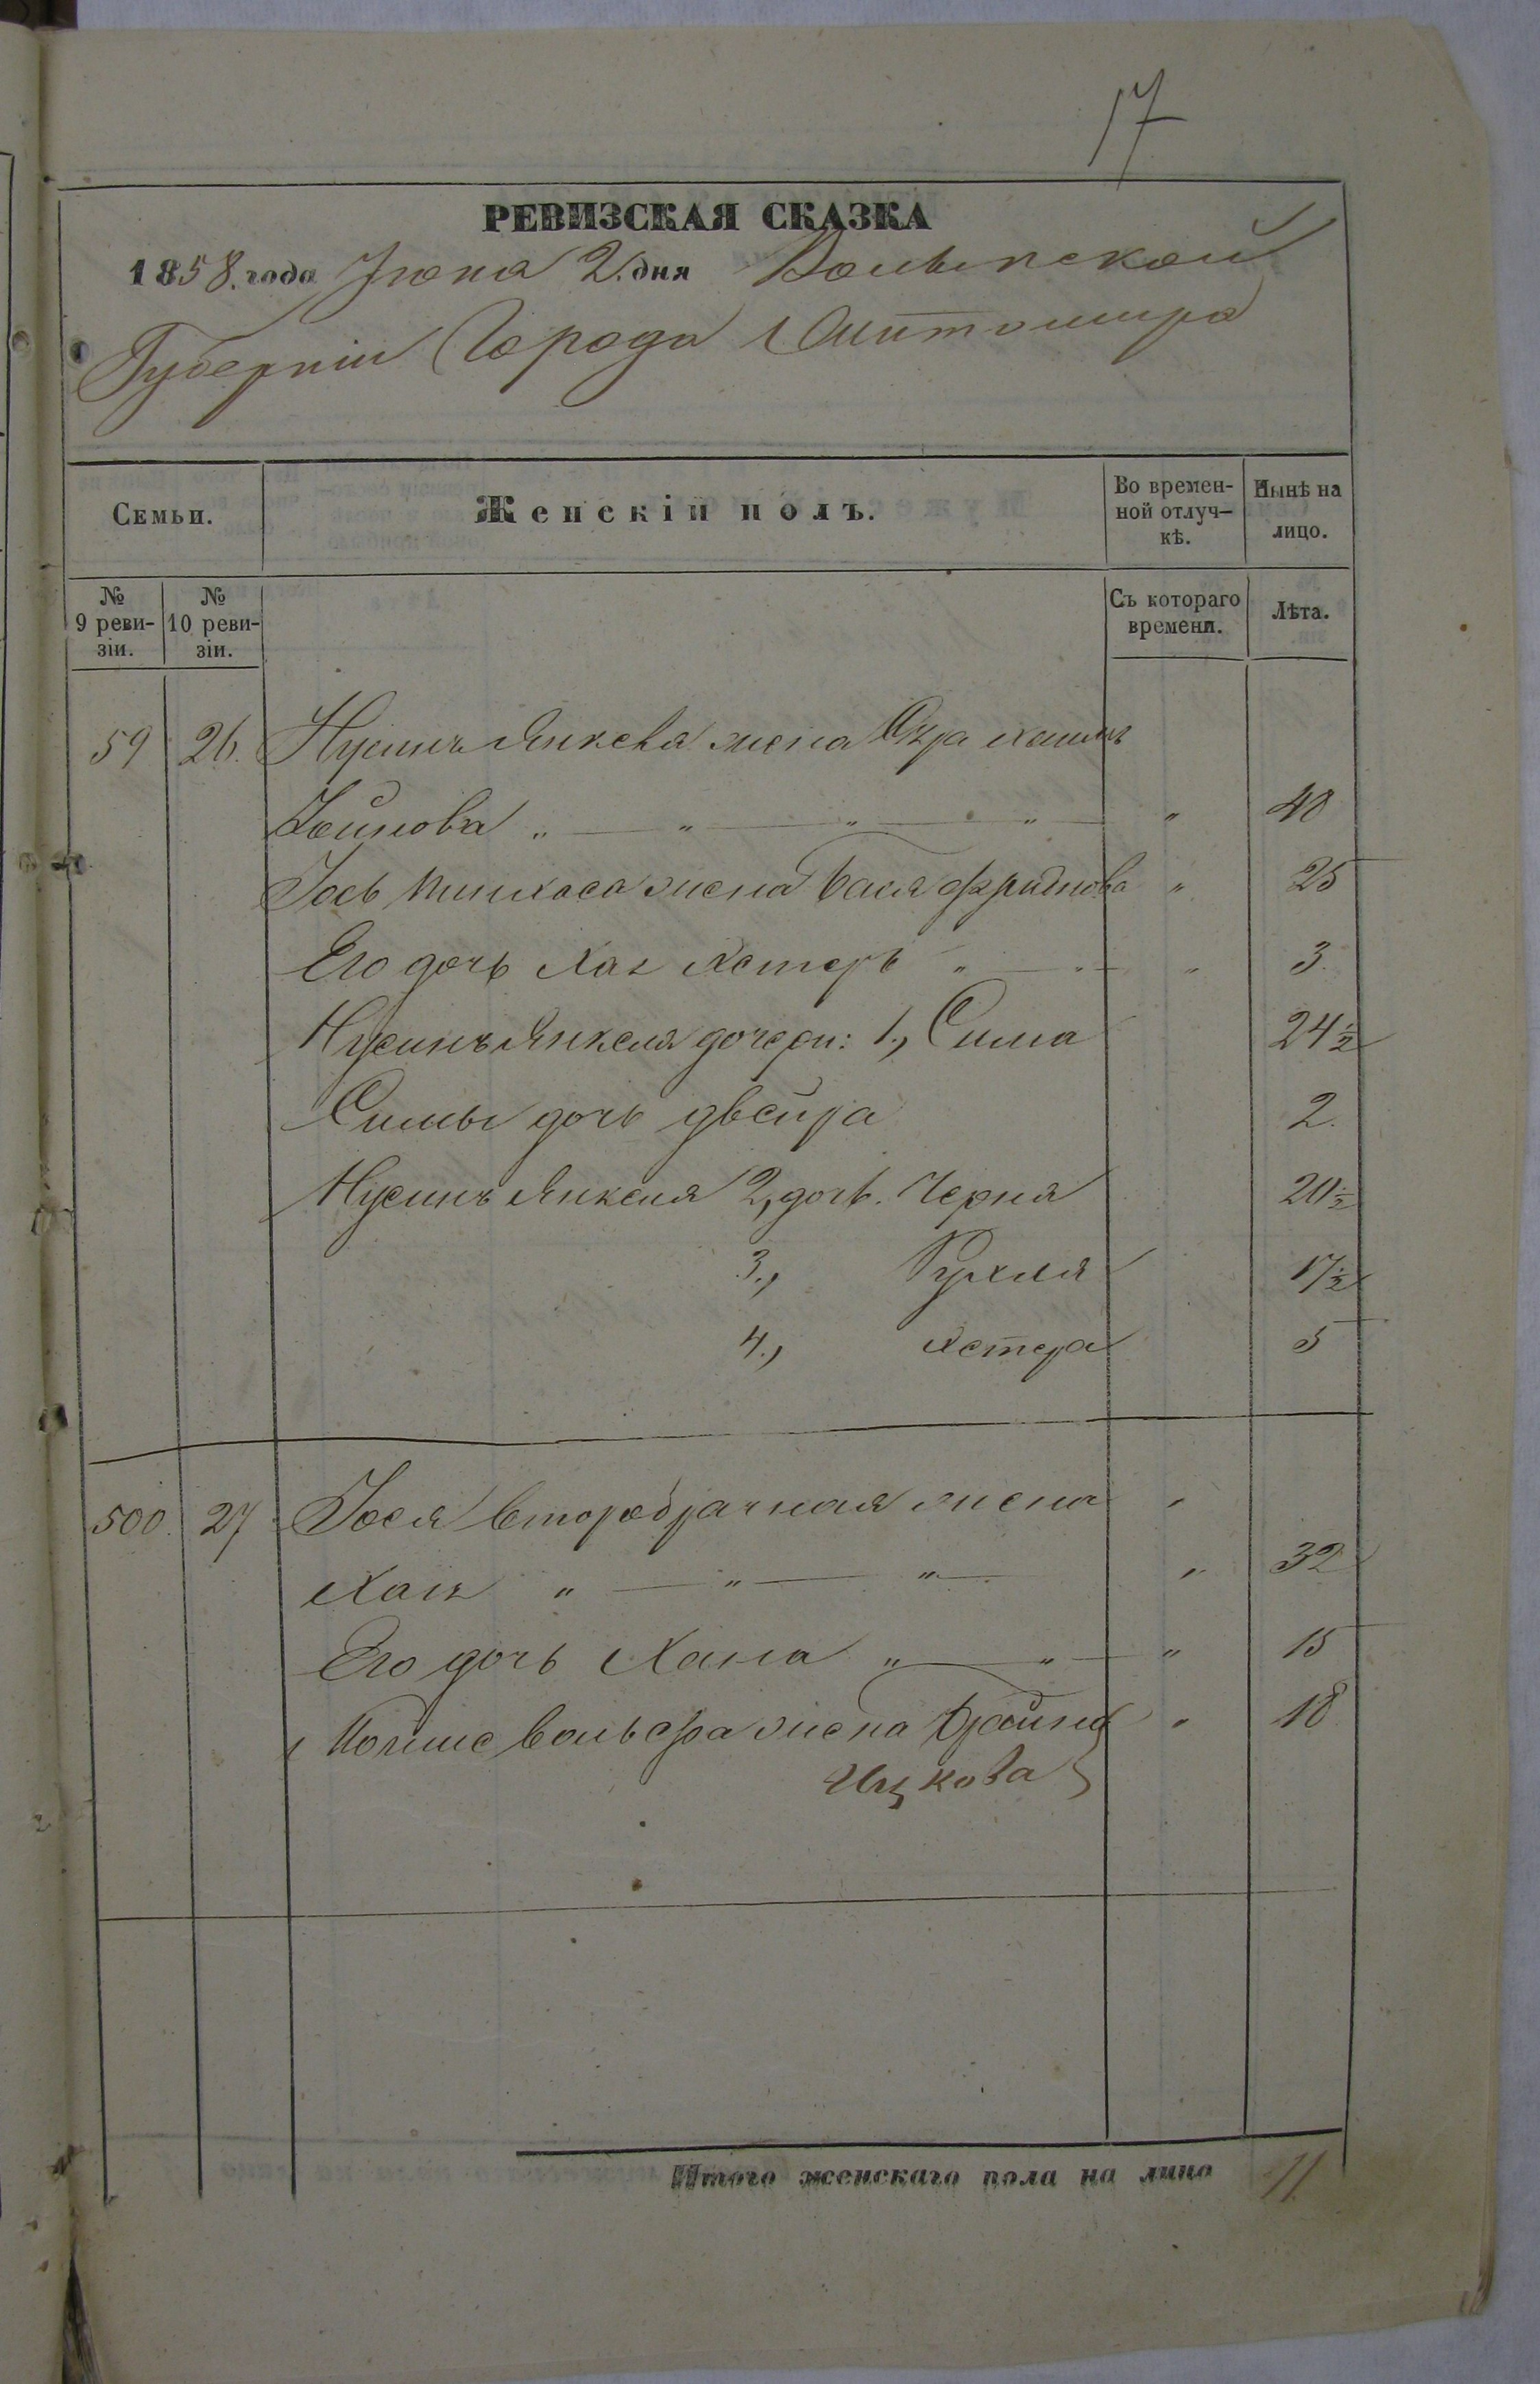 17
РЕВИЗСКАЯ СКАЗКА
1858. года Июня 2. дня Волынской
Губерніи Города Житомира
Семьи.
Женскій полъ.
Во времен-
ной отлуч-
кѣ.
Нынѣ на
лицо.
№
9 реви-
зіи.
№
10 реви-
зіи.
Съ котораго
времени.
Лѣта.
59 26. Нусинъ Янкеля жена
" " " " " 40
Іось Пинхаса жена Бася " 25
Его дочь Хая Хестеръ " " " 3.
Нусинъ Янкеля дочери: 1., Сима 24½
Симы дочь Двейра 2.
Нусинъ Янкеля 2, дочь. Черня 20½
3., Рухля 17½
4., Хестера 5
500. 27 Іося второбрачная жена "
Хая " " " " 32
Его дочь Хана " " " 15
Вольфа жена Брайна " 18
Ицкова
Итого женскаго пола на лицо 11